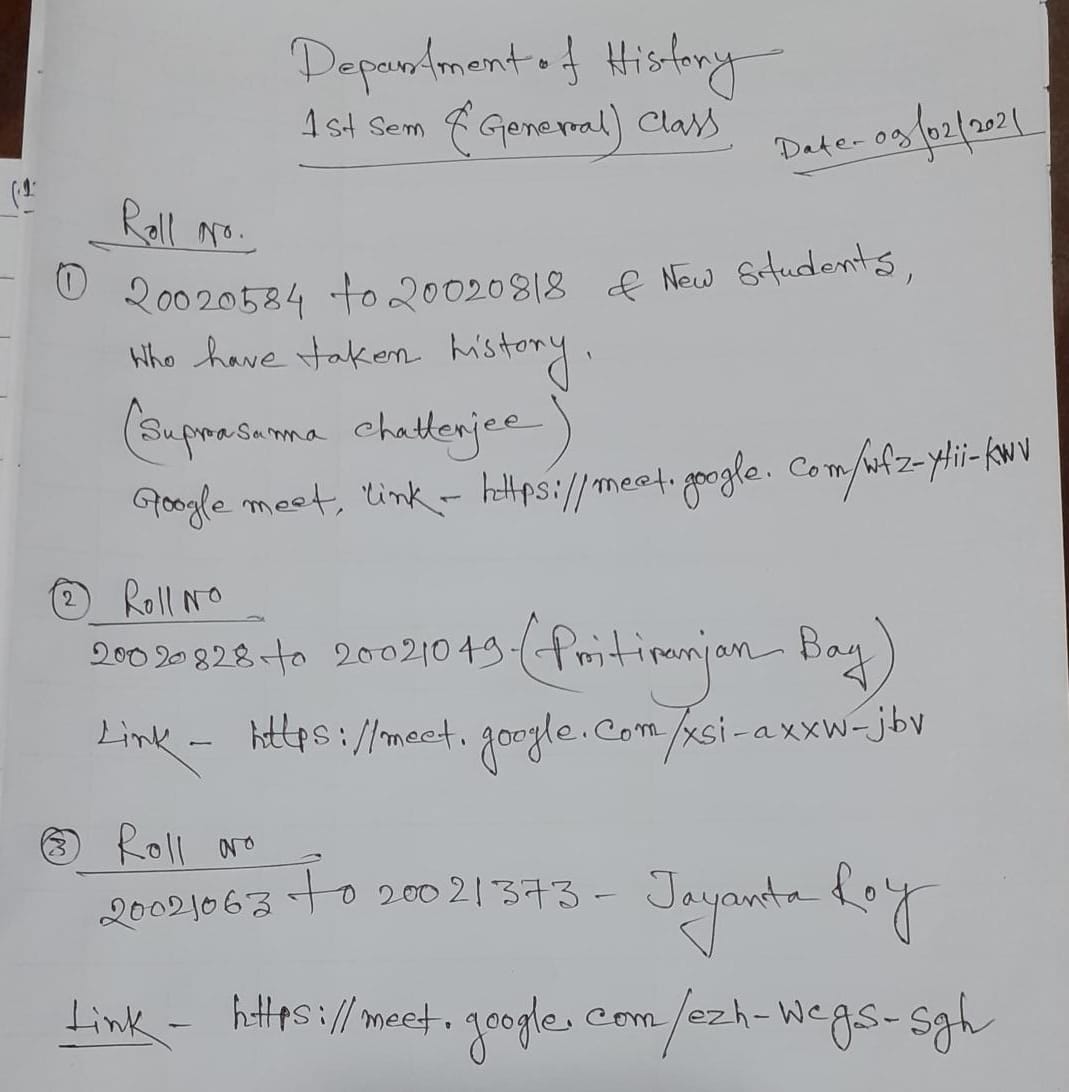 Department of History
1st Sem (General) Class
Date- 09/02/2021
Roll No.
① 20020584 to 20020818 & New Students,
Who have taken history.
(Suprasanna Chatterjee)
Google meet, link - https://meet.google.com/wfz-ytii-kwv
② Roll No
20020828 to 20021049 (Pritiranjan Bag)
Link - https://meet.google.com/xsi-axxw-jbv
③ Roll no
20021063 to 20021373 - Jayanta Roy
Link - https://meet.google.com/ezh-wcgs-sgh